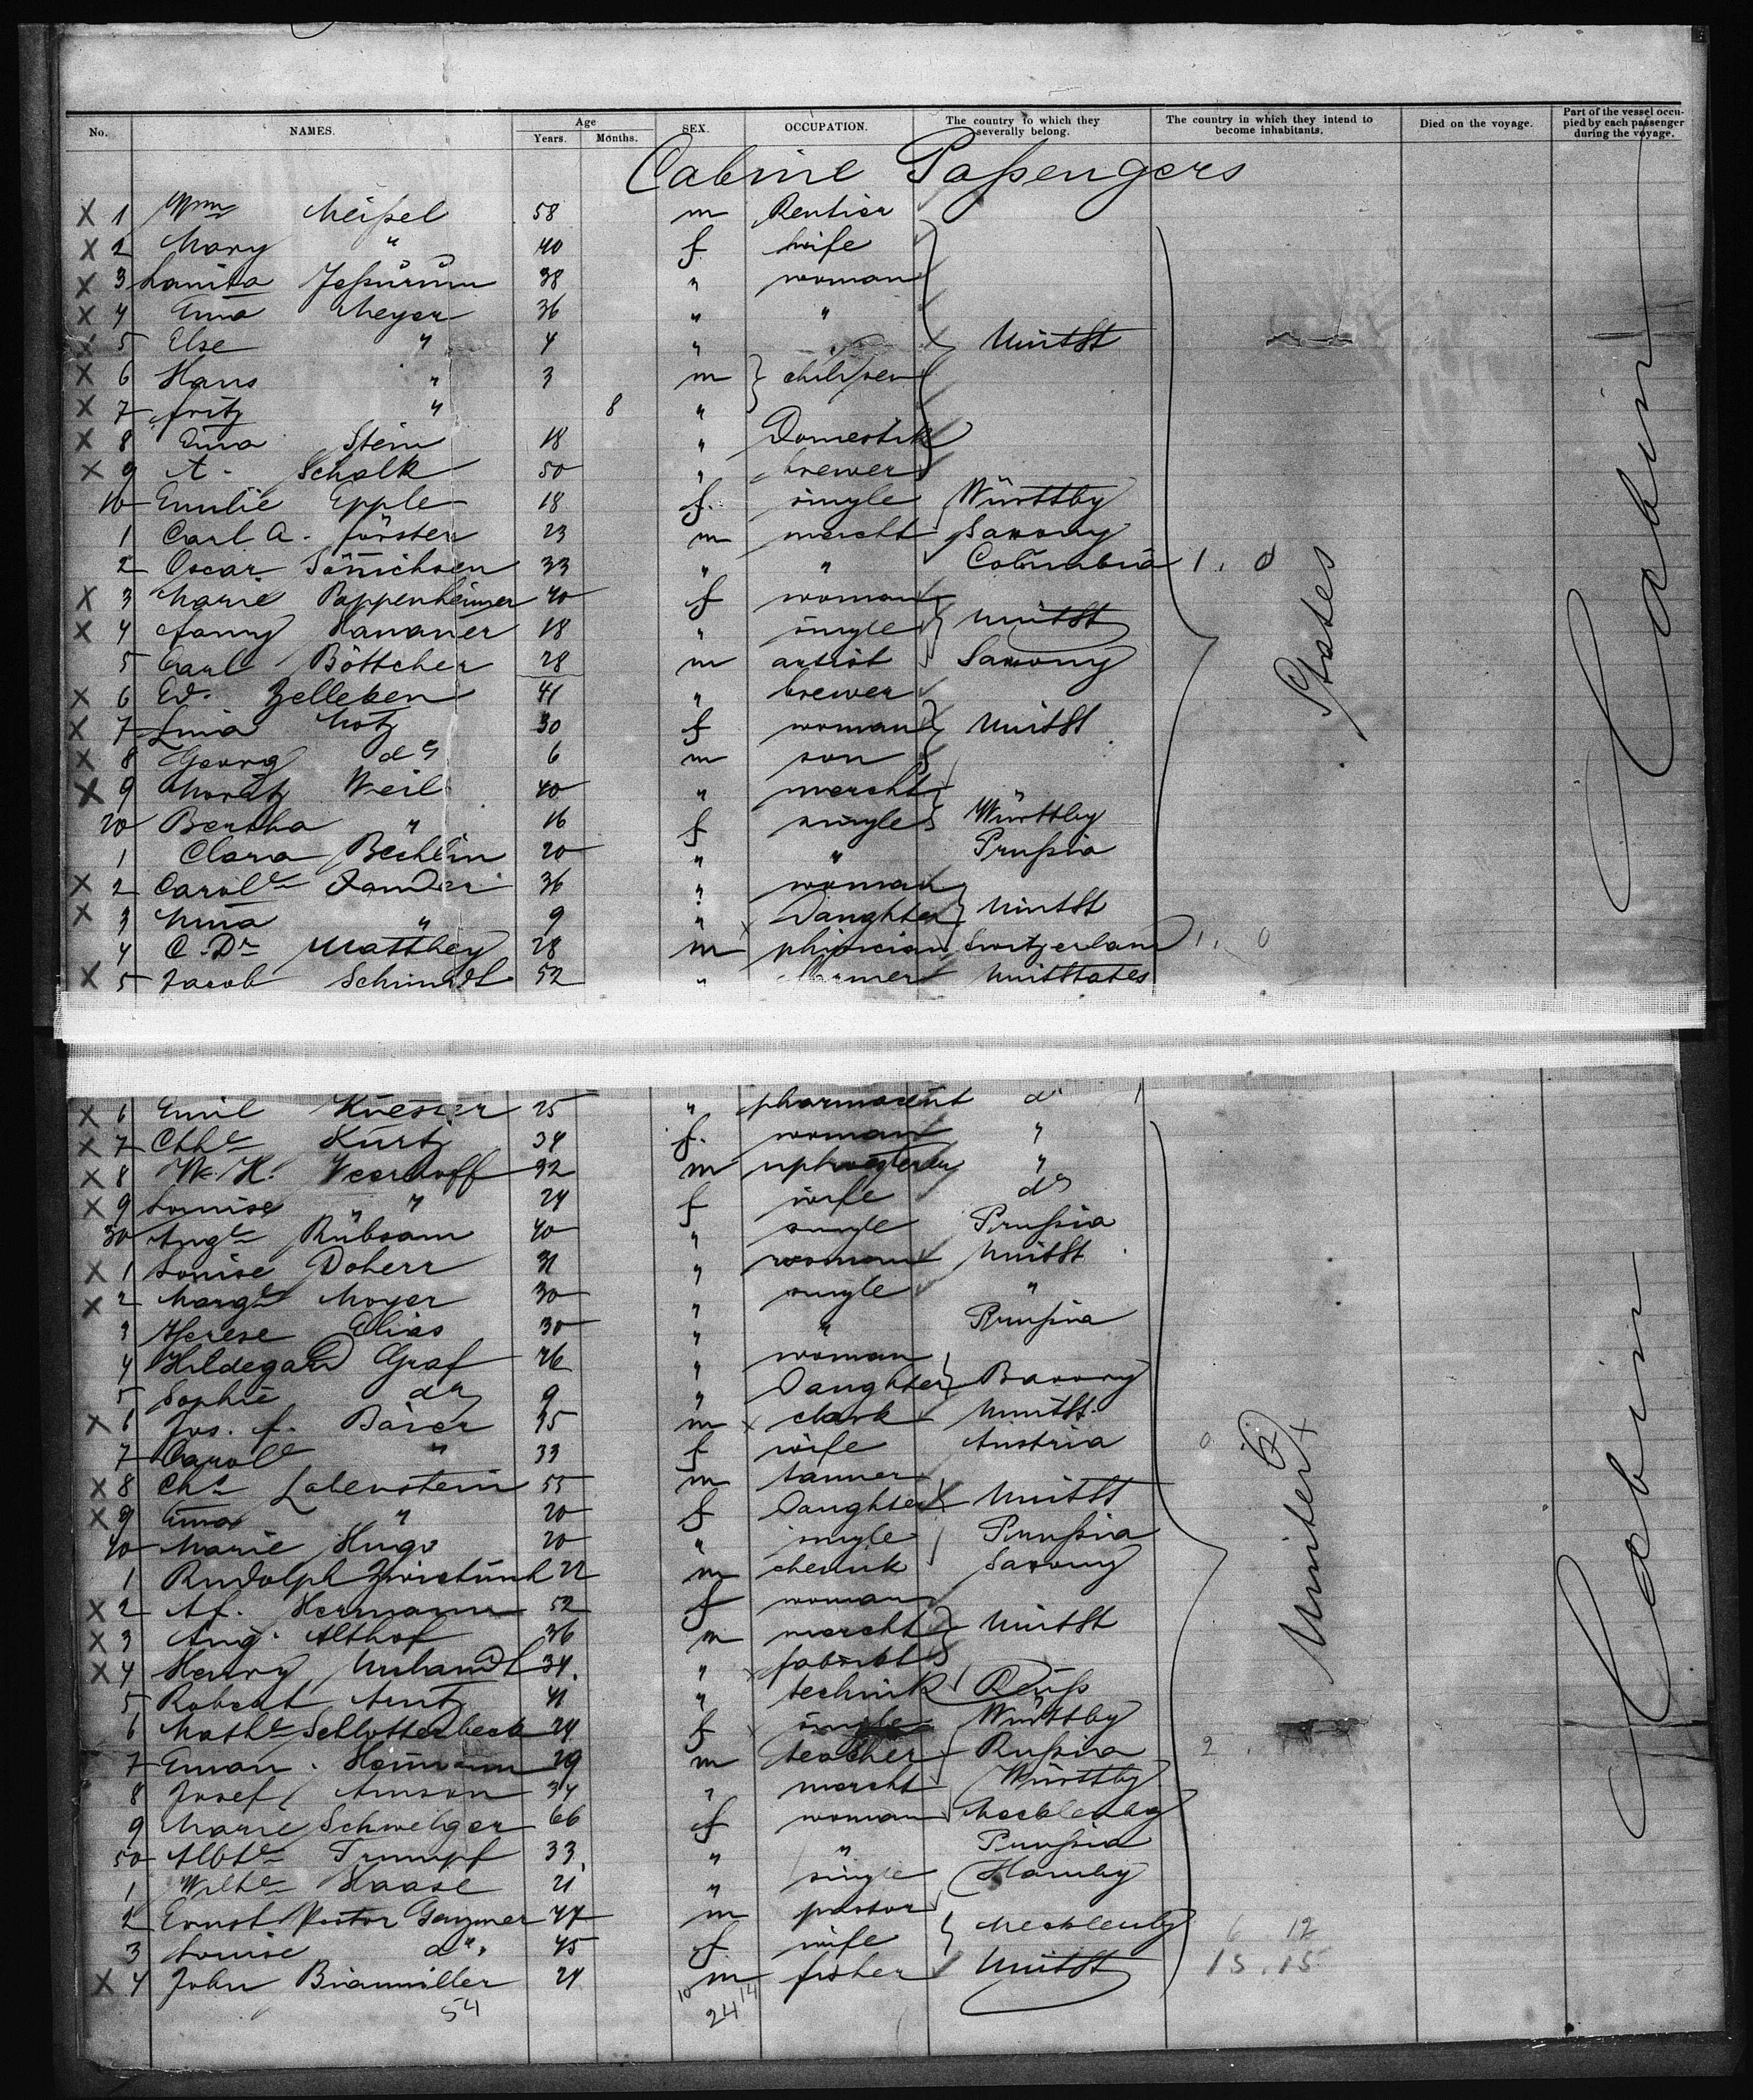 No. NAMES. Age Years. Months. SEX. OCCUPATION. The country to which they severally belong. The country in which they intend to become inhabitants. Died on the voyage. Part of the vessel occupied by each passenger during the voyage.
Cabine Passengers
X 1 Wm Meissel 58 m Rentier
X 2 Mary " 40 f wife
X 3 Jessurun 38 " woman
X 4 Meyer 36 " "
X 5 Else " 4 " UnitSt
X 6 Hans " 3 m children
X 7 Fritz " 8 "
X 8 Stein 18 " Domestik
X 9 A. Schalk 50 " brewer
10 Emilie Epple 18 f. single Württbg
1 Carl A. Förster 23 m mercht Saxony
2 Oscar Sönnichsen 33 " " Columbia 1. 0
X 3 Marie Pappenheimer 40 f woman
X 4 Fanny Hanauer 18 " single UnitSt
5 Carl Böttcher 28 m artist Saxony
X 6 Ed. Zelleken 41 " brewer
X 7 Lina Motz 30 f woman UnitSt
X 8 Georg do 6 m son
X 9 Moritz Weil 40 " mercht
20 Bertha " 16 f single Württbg
1 Clara Bechlin 20 " " Prussia
X 2 Carole Xander 36 " woman
X 3 " 9 " Daughter UnitSt
4 C. Dr Matthey 28 m phisician Switzerland 1. 0
X 5 Jacob Schmidt 52 " UnitStates
X 6 Emil Kuester 25 " pharmaceut do
X 7 Kurtz 34 f. woman "
X 8 Veerhoff 32 m "
X 9 Louise " " 24 f wife do
30 Auge Rübsam 40 " single Prussia
X 1 Louise Doherr 31 " woman UnitSt
X 2 Margt Moyer 30 " single "
3 Therese Elias 30 " " Prussia
4 Hildegard Graf 26 " woman
5 Sophie do 9 " Daughter
X 6 Jos. F. 35 m clerk UnitSt.
7 Carole " 33 f wife Austria 0
X 8 Chs Labenstein 55 m tanner
X 9 " 20 f Daughter UnitSt
40 Marie Hugo 20 " single Prussia
1 Rudolph 22 m chemik Saxony
X 2 Hermann 52 f woman
X 3 Aug. Althof 36 m mercht UnitSt
X 4 Henry 34. "
5 Robert Arntz 41 " technik Reuss
6 Mathe Schlotterbeck 24 f single Württbg
7 Eman. Heimann 29 m teacher Russia 2
8 Josef Arnson 34 " mercht Württbg
9 Marie 66 f woman Mecklenbg
50 Albte Trumpf 33 " " Prussia
1 Wilhe Haase 21 " single Hambg
2 Ernst Pastor Genzmer 47 m pastor
3 Louise do. 45 f wife Mecklenbg 6 12
X 4 John Braunmiller 24 m fisher UnitSt 15. 15
54 10 24 14
States
United
Cabin
Cabin